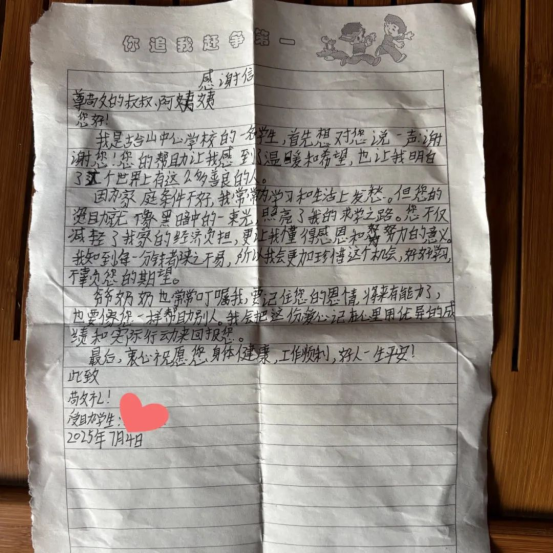 你追我赶争第一
感谢信
尊敬的叔叔、阿姨
您好!
我是古台山中心学校的一名学生,首先想对您说一声:谢
谢您!您的帮助让我感到了温暖和希望,也让我明白
了这个世界上有这么多善良的人。
因为家庭条件不好,我常常为学习和生活上发愁。但您的
资助就像黑暗中的一束光,照亮了我的求学之路。您不仅
减轻了我家的经济负担,更让我懂得感恩和努力的意义。
我知道每一分钱都来之不易,所以我会更加珍惜这个机会,好好学习,
不辜负您的期望。
爷爷奶奶也常常叮嘱我,要记住您的恩情,将来有能力了,
也要像您一样帮助别人。我会把这份爱心记在心里用优异的成
绩和实际行动来回报您。
最后,衷心祝愿您身体健康,工作顺利,好人一生平安!
此致
敬礼!
受助学生:
2025年7月4日